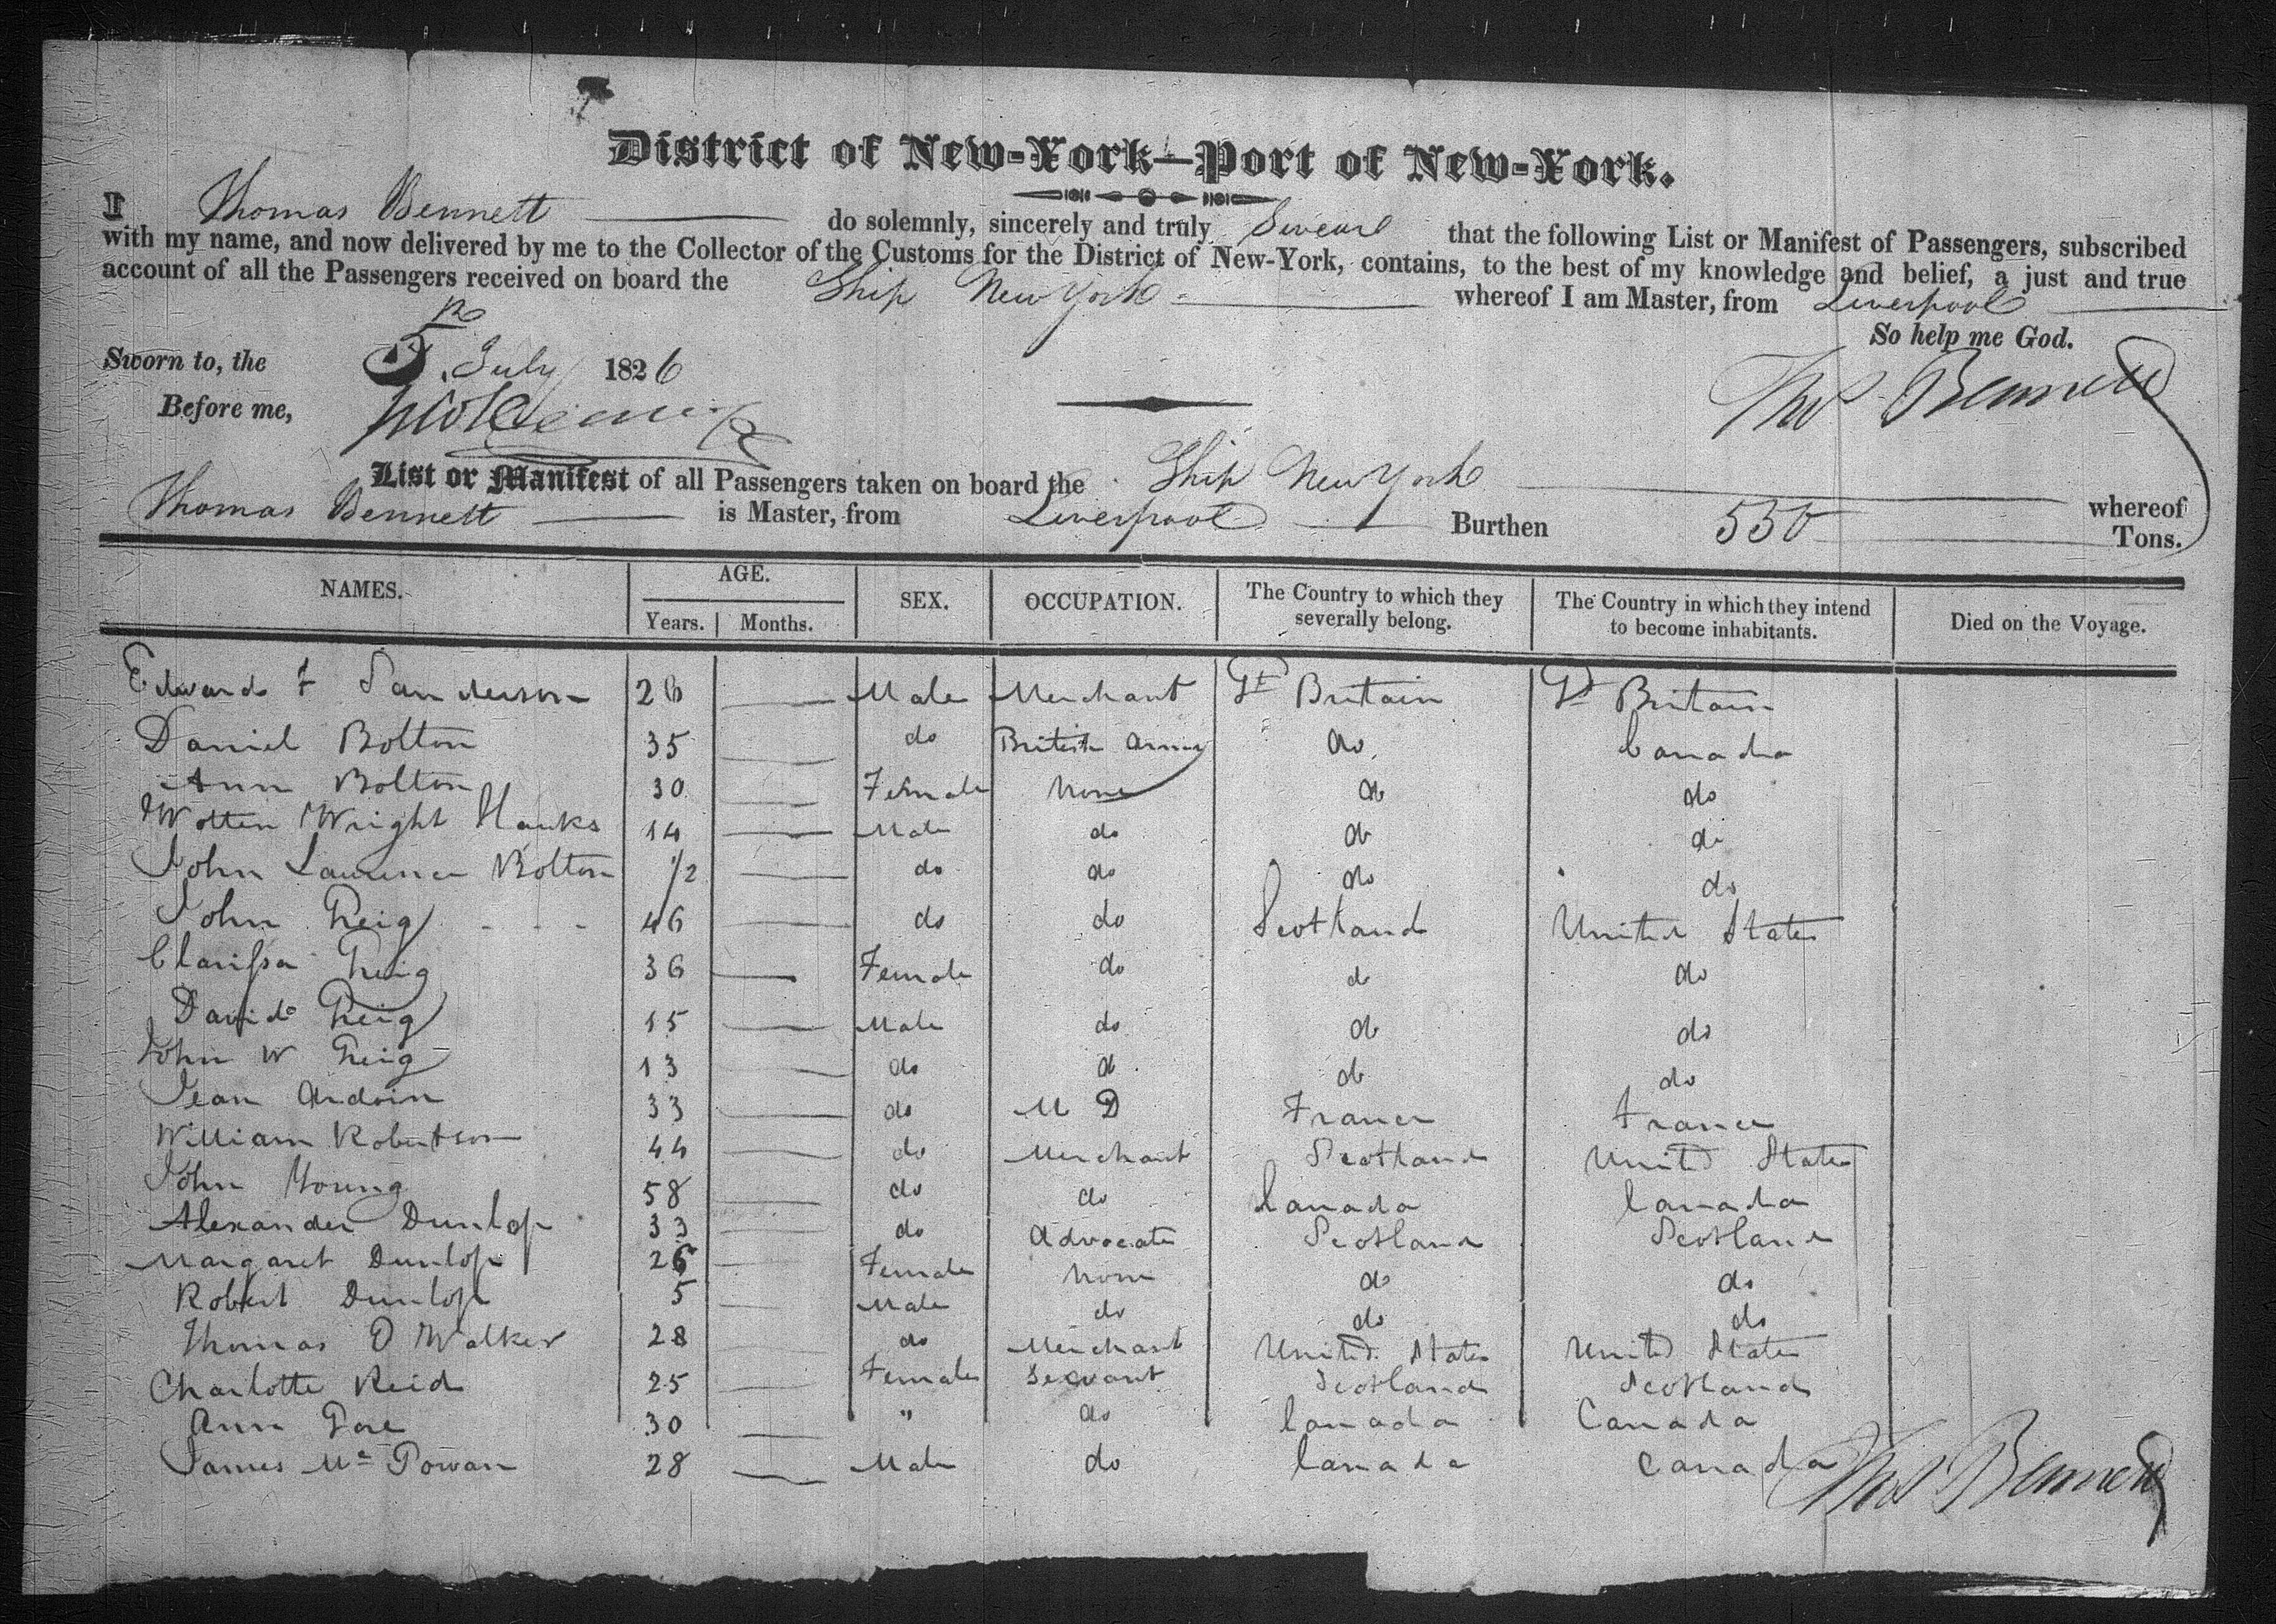 District of New-York—Port of New-York.
I Thomas Bennett do solemnly, sincerely and truly Swear that the following List or Manifest of Passengers, subscribed
with my name, and now delivered by me to the Collector of the Customs for the District of New-York, contains, to the best of my knowledge and belief, a just and true
account of all the Passengers received on board the Ship New York whereof I am Master, from Liverpool
So help me God.
Sworn to, the 5 July 1826
Before me,
Thos Bennett
List or Manifest of all Passengers taken on board the Ship New York whereof
Thomas Bennett is Master, from Liverpool Burthen 530 Tons.
NAMES. AGE. Years. Months. SEX. OCCUPATION. The Country to which they severally belong. The Country in which they intend to become inhabitants. Died on the Voyage.
Edward F Sanderson 28 Male Merchant Gt Britain Gt Britain
Daniel Bolton 35 do British Army do Canada
Ann Bolton 30 Female None do do
Wright Hawks 14 Male do do do
John Laurence Bolton 1/2 do do do do
John Greig 46 do do Scotland United States
Clarissa Greig 36 Female do do do
David Greig 15 Male do do do
John W Greig 13 do do do do
Jean Ardoin 33 do M D France France
William Robertson 44 do Merchant Scotland United States
John Young 58 do do Canada Canada
Alexander Dunlop 33 do Advocate Scotland Scotland
Margaret Dunlop 26 Female None do do
Robert Dunlop 5 Male do do do
Thomas O Walker 28 do Merchant United States United States
Charlotte Reid 25 Female Servant Scotland Scotland
Ann Gore 30 " do Canada Canada
James Mc Gowan 28 Male do Canada Canada
Thos Bennett